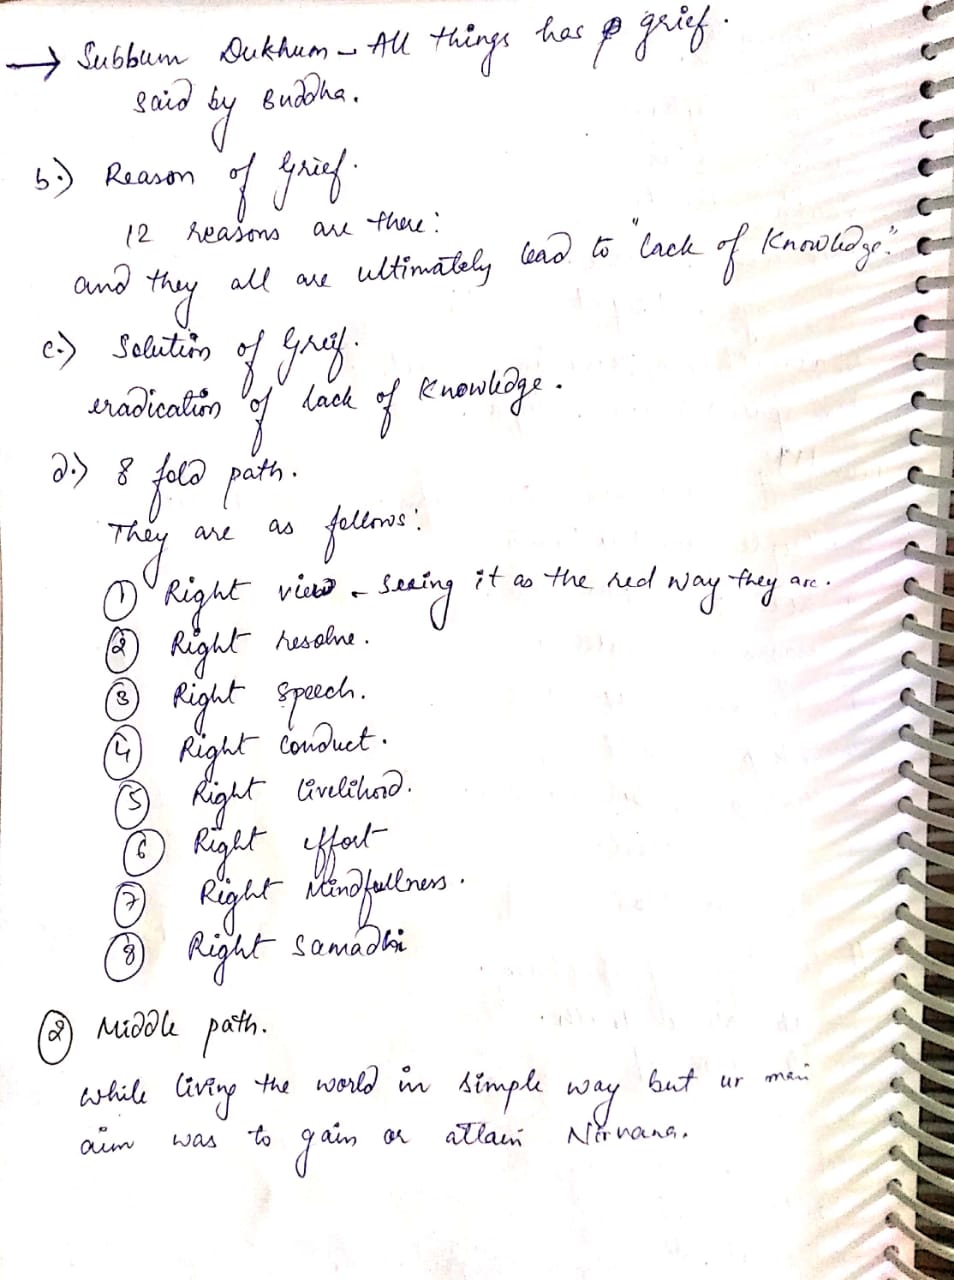 → Subbum Dukhum - All things has grief.
said by Buddha.
b.) Reason of Grief.
12 reasons are there:
and they all are ultimately lead to "lack of Knowledge."
c.) Solution of Grief.
eradication of lack of Knowledge.
d.) 8 fold path.
They are as follows:
① Right view - seeing it as the red way they are.
② Right resolve.
③ Right speech.
④ Right conduct.
⑤ Right livelihood.
⑥ Right effort
⑦ Right Mindfullness.
⑧ Right Samadhi
② Middle path.
while living the world in simple way but ur main
aim was to gain or attain Nirvana.